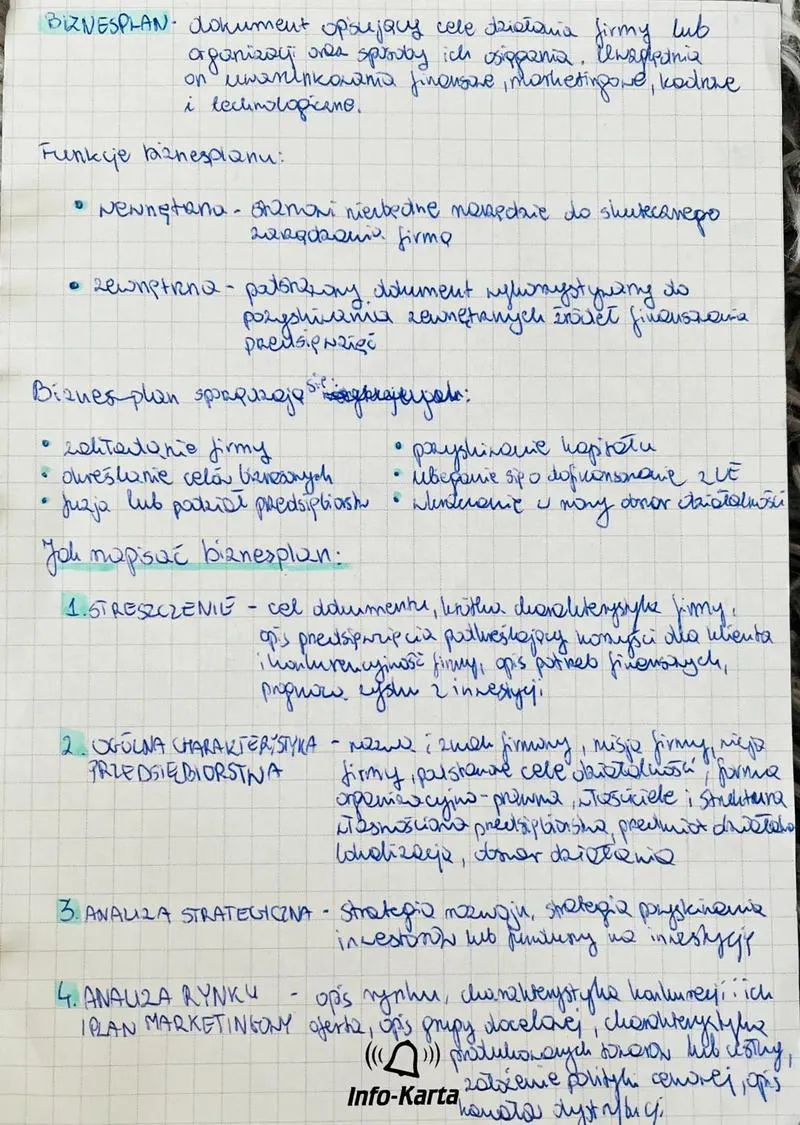 BIZNESPLAN - dokument opisujący cele działania firmy lub
organizacji oraz sposoby ich osiągania. Uwzględnia
on uwarunkowania finansowe, marketingowe, kadrowe
i technologiczne.
Funkcje biznesplanu:
• wewnętrzna - stanowi niezbędne narzędzie do skutecznego
zarządzania firmą
• zewnętrzna - dokument wykorzystywany do
pozyskiwania zewnętrznych źródeł finansowania
przedsięwzięć
Biznes-plan sporządzają się:
• zakładanie firmy
• określanie celów biznesowych
• fuzja lub podział przedsiębiorstw
• pozyskiwanie kapitału
• ubieganie się o dofinansowanie z UE
• wkraczanie w nowy obszar działalności
Jak napisać biznesplan:
1. STRESZCZENIE - cel dokumentu, krótka charakterystyka firmy,
opis przedsięwzięcia podkreślający korzyści dla klienta
i konkurencyjność firmy, opis potrzeb finansowych,
prognoza zysku z inwestycji
2. OGÓLNA CHARAKTERYSTYKA - nazwa i znak firmowy, misja firmy, wizja
PRZEDSIĘBIORSTWA firmy, podstawowe cele działalności, forma
organizacyjno-prawna, właściciele i struktura
własnościowa przedsiębiorstwa, przedmiot działania
lokalizacja, obszar działania
3. ANALIZA STRATEGICZNA - strategia rozwoju, strategia pozyskiwania
inwestorów lub funduszy na inwestycję
4. ANALIZA RYNKU - opis rynku, charakterystyka konkurencji i ich
I PLAN MARKETINGOWY oferta, opis grupy docelowej, charakterystyka
produkowanych towarów lub usług,
założenie polityki cenowej, opis
kanału dystrybucji
Info-Karta